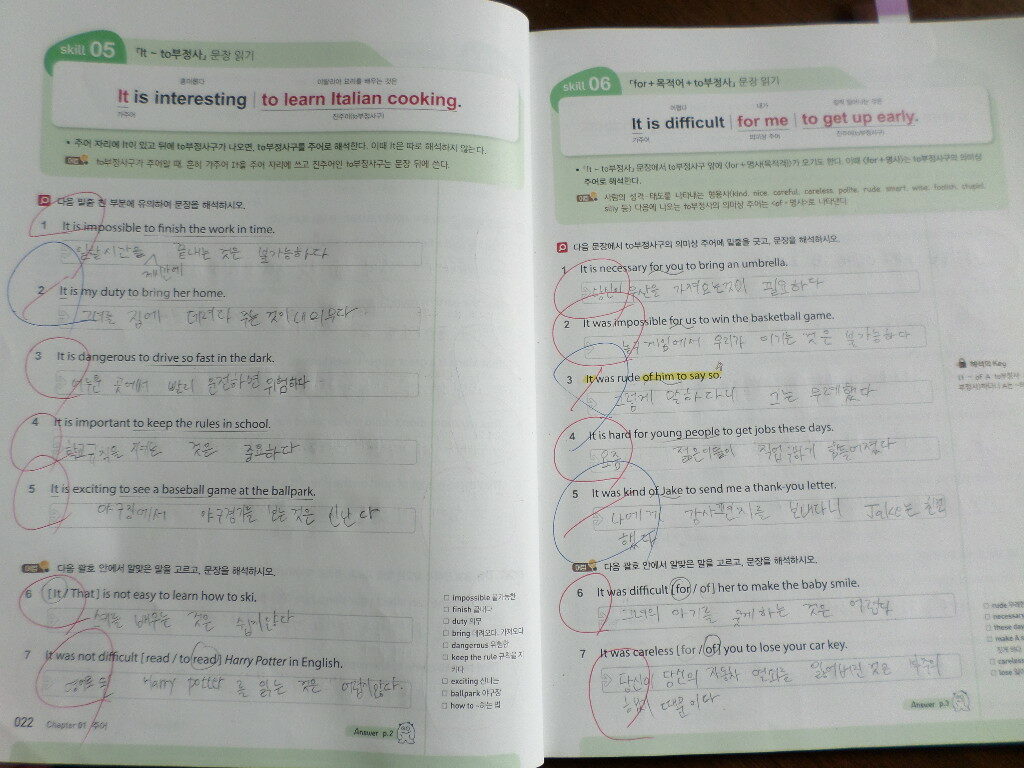 skill 05 「It ~ to부정사」 문장 읽기
흥미롭다 이탈리아 요리를 배우는 것은
It is interesting to learn Italian cooking.
가주어 진주어(to부정사구)
• 주어 자리에 It이 있고 뒤에 to부정사구가 나오면, to부정사구를 주어로 해석한다. 이때 It은 따로 해석하지 않는다.
어법 to부정사구가 주어일 때, 흔히 가주어 It을 주어 자리에 쓰고 진주어인 to부정사구는 문장 뒤에 쓴다.
다음 밑줄 친 부분에 유의하여 문장을 해석하시오.
1 It is impossible to finish the work in time.
끝내는 것은 불가능하다
제시간에
2 It is my duty to bring her home.
그녀를 집에 데려다 주는 것이 내 의무다
3 It is dangerous to drive so fast in the dark.
어두운 곳에서 빨리 운전하면 위험하다
4 It is important to keep the rules in school.
학교 규칙을 것은 중요하다
5 It is exciting to see a baseball game at the ballpark.
야구장에서 야구경기를 보는 것은 신난다
어법 다음 괄호 안에서 알맞은 말을 고르고, 문장을 해석하시오.
6 [It / That] is not easy to learn how to ski.
배우는 것은 쉽지않다
7 It was not difficult [read / to read] Harry Potter in English.
영어로 Harry Potter 를 읽는 것은 어렵지않다.
impossible 불가능한
finish 끝내다
duty 의무
bring 데려오다, 가져오다
dangerous 위험한
keep the rule 규칙을 지키다
exciting 신나는
ballpark 야구장
how to ~하는 법
022 Chapter 01 주어
Answer p.2
skill 06 「for + 목적어 + to부정사」 문장 읽기
어렵다 내가 일찍 일어나는 것은
It is difficult for me to get up early.
가주어 의미상 주어 진주어(to부정사구)
• 「It ~ to부정사」 문장에서 to부정사구 앞에 〈for + 명사(목적격)〉가 오기도 한다. 이때 〈for + 명사〉는 to부정사구의 의미상 주어로 해석한다.
어법 사람의 성격·태도를 나타내는 형용사(kind, nice, careful, careless, polite, rude, smart, wise, foolish, stupid, silly 등) 다음에 나오는 to부정사의 의미상 주어는 〈of + 명사〉로 나타낸다.
다음 문장에서 to부정사구의 의미상 주어에 밑줄을 긋고, 문장을 해석하시오.
1 It is necessary for you to bring an umbrella.
당신이 우산을 가져오는것이 필요하다
2 It was impossible for us to win the basketball game.
농구 게임에서 우리가 이기는 것은 불가능하다
3 It was rude of him to say so.
그렇게 말하다니 그는 무례했다
4 It is hard for young people to get jobs these days.
요즘 젊은이들이 직업 힘들어졌다
5 It was kind of Jake to send me a thank-you letter.
나에게 감사편지를 보내다니 Jake는 친절
했다
어법 다음 괄호 안에서 알맞은 말을 고르고, 문장을 해석하시오.
6 It was difficult [for / of] her to make the baby smile.
그녀의 아기를 웃게하는 것은 어렵다
7 It was careless [for / of] you to lose your car key.
당신이 당신의 자동차 열쇠를 잃어버린 것은
때문이다.
해석의 Key
rude 무례한
necessary
these days
make A
careless
lose
Answer p.3